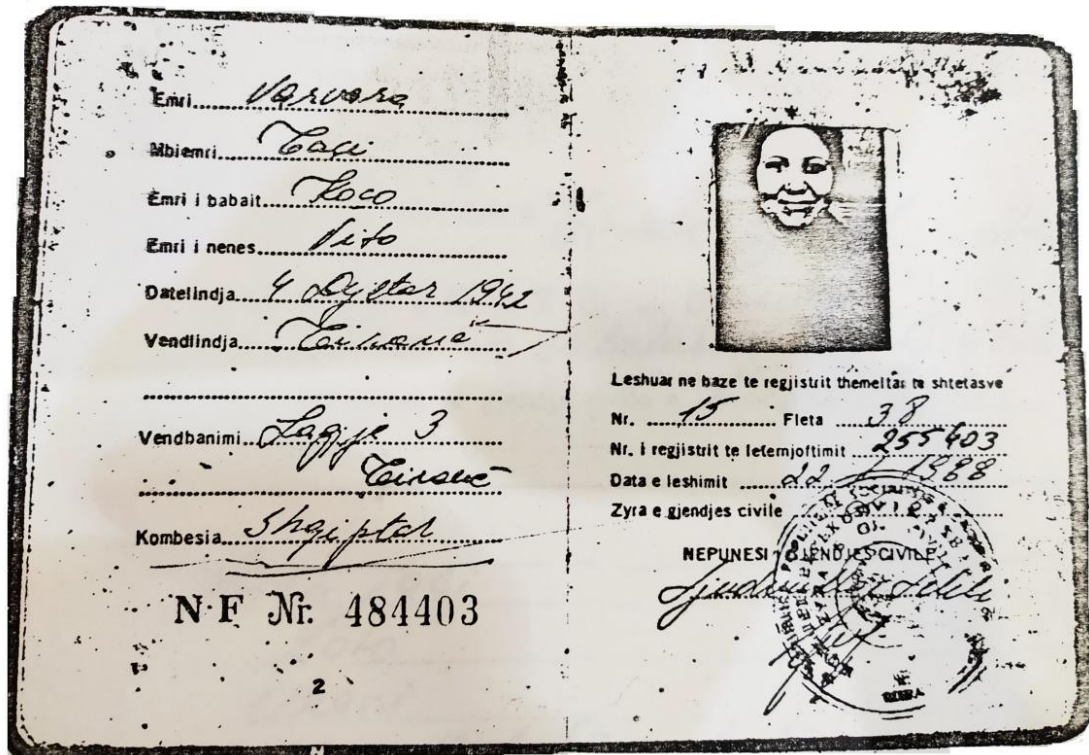 Emri Varvara
Mbiemri
Emri i babait Koco
Emri i nenes Vito
Datelindja 4 Dhjetor 1942
Vendlindja Tiranë
Vendbanimi Lagjje 3
Tiranë
Kombesia Shqiptar
N·F Nr. 484403
2
Leshuar ne baze te regjistrit themeltar te shtetasve
Nr. 15 Fleta 38
Nr. i regjistrit te leternjoftimit 255403
Data e leshimit 22 1988
Zyra e gjendjes civile
NEPUNESI I GJENDJES CIVILE